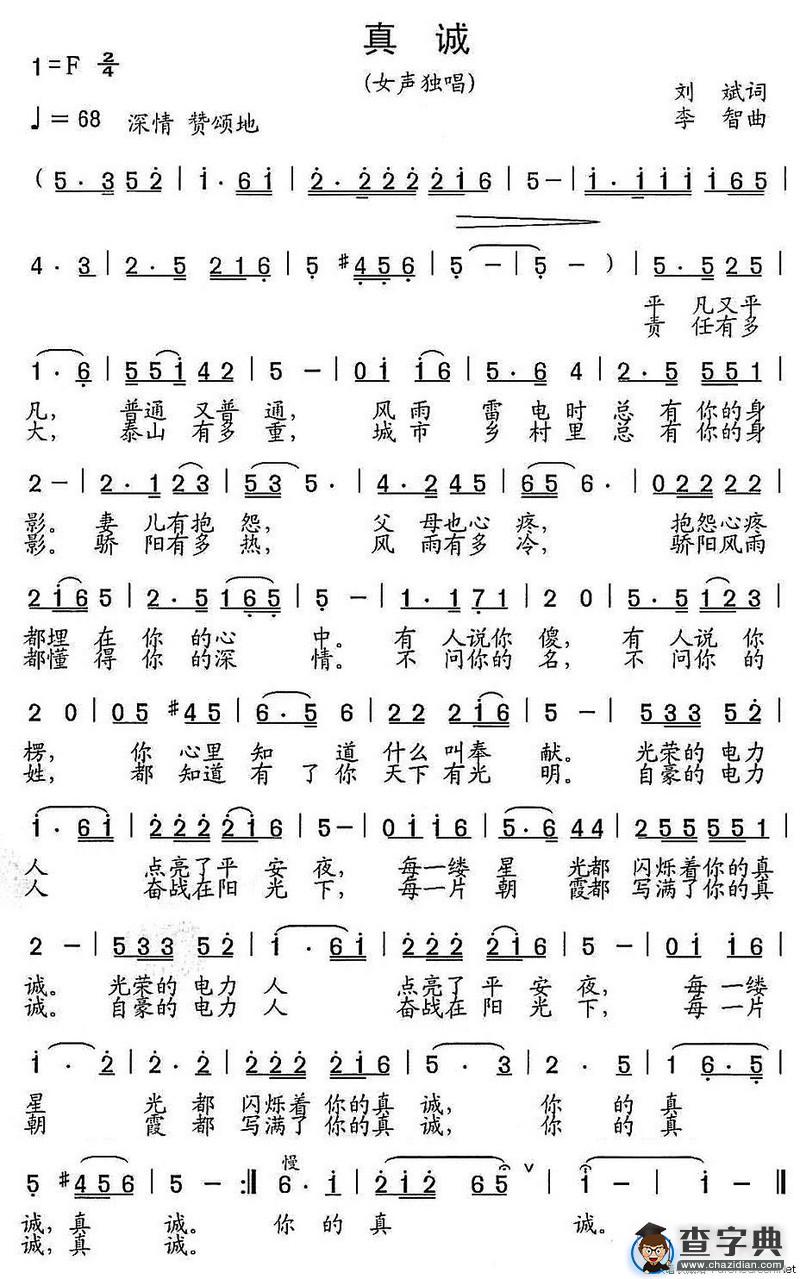 真 诚
1=F 2/4
(女声独唱)
刘 斌词
♩=68 深情 赞颂地
李 智曲
( 5·3 52 | 1·61 | 2·222216 | 5- | 1·111165 |
4·3 | 2·5 216 | 5 #456 | 5 - | 5 - ) | 5·525 |
平 凡又平
责 任有多
1·6 | 5551 42 | 5 - | 01 16 | 5·6 4 | 2·5 5551 |
凡, 普通 又普 通, 风雨 雷 电时 总 有 你的身
大, 泰山 有多 重, 城市 乡 村里 总 有 你的身
2- | 2·123 | 53 5· | 4·245 | 65 6· | 022222 |
影。 妻 儿有抱 怨, 父 母也心 疼, 抱怨心疼
影。 骄 阳有多 热, 风 雨有多 冷, 骄阳风雨
2165 | 2·5165 | 5 - | 1·171 | 2 0 | 5·5123 |
都埋 在 你 的心 中。 有 人说你 傻, 有 人说 你
都懂 得 你 的深 情。 不 问你的 名, 不 问你 的
2 0 | 05 #45 | 6·5 6 | 22 216 | 5 - | 533 52 |
楞, 你 心里 知 道 什么 叫奉 献。 光荣的 电力
姓, 都 知道 有 了 你 天下 有光 明。 自豪的 电力
1·61 | 222216 | 5- | 0116 | 5·6 44 | 255551 |
人 点亮了平 安夜, 每一缕 星 光都 闪烁着你的真
人 奋战在阳 光下, 每一片 朝 霞都 写满了你的真
2 - | 533 52 | 1·61 | 222 216 | 5- | 01 16 |
诚。 光荣的 电力 人 点亮了 平 安夜, 每 一缕
诚。 自豪的 电力 人 奋战在 阳 光下, 每 一片
1·2 | 2·2 | 2222216 | 5·3 | 2·5 | 1 6·5 |
星 光 都 闪烁着 你的真 诚, 你 的 真
朝 霞 都 写满了 你的真 诚, 你 的 真
慢
5 #456 | 5 - :‖ 6·1 | 212 65 ∨ | 1 - | 1 - ‖
诚,真 诚。 你 的 真 诚。
诚,真 诚。
查字典
www.chazidian.com